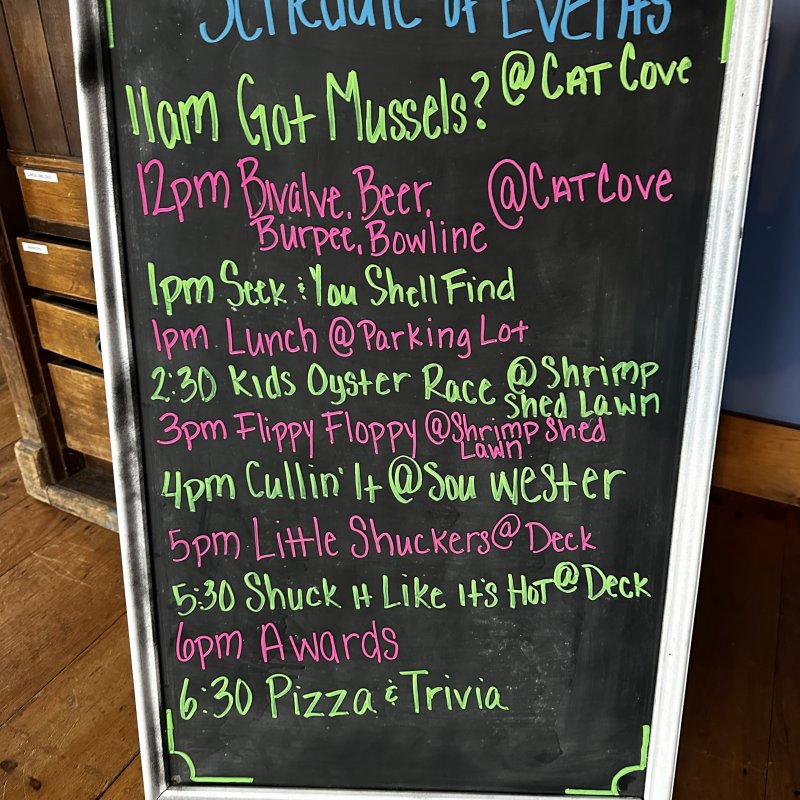 Schedule of Events
11am Got Mussels? @ Cat Cove
12pm Bivalve, Beer, @ Cat Cove
Burpee, Bowline
1pm Seek & You Shell Find
1pm Lunch @ Parking Lot
2:30 Kids Oyster Race @ Shrimp
Shed Lawn
3pm Flippy Floppy @ Shrimp Shed
Lawn
4pm Cullin' It @ Sou Wester
5pm Little Shuckers @ Deck
5:30 Shuck it Like it's Hot @ Deck
6pm Awards
6:30 Pizza & Trivia